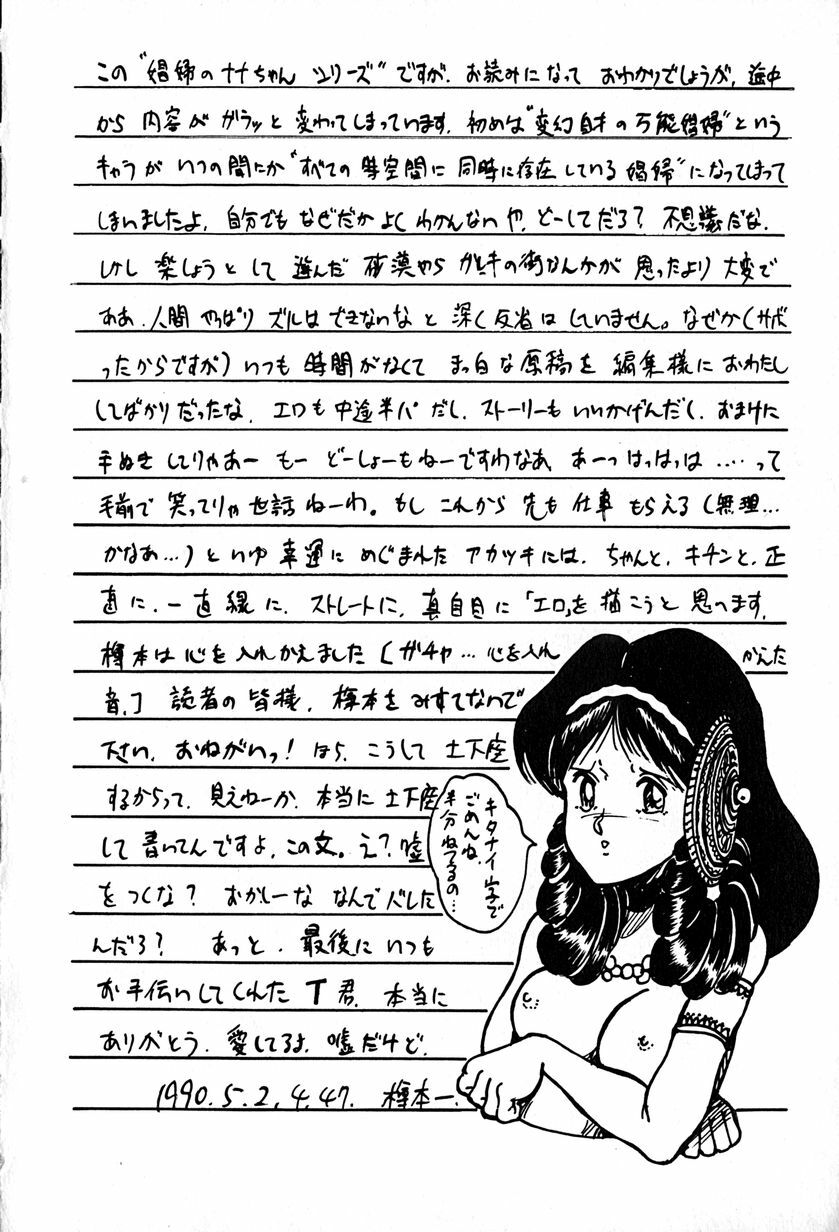 この"娼婦のナナちゃんシリーズ"ですが、お読みになっておわかりでしょうが、途中
から内容がガラッと変わってしまっています。初めは"変幻自才の万能娼婦"という
キャラがいつの間にか"すべての時空間に同時に存在している娼婦"になってしまって
しまいましたよ、自分でもなぜだかよくわかんないや、どーしてだろ?不思議だな。
しかし楽しようとして選んだ砂漠やらガレキの街なんかが思ったより大変で
ああ、人間やっぱりズルはできないなと深く反省はしていません。なぜか(サボ
ったからですが)いつも時間がなくてまっ白な原稿を編集様におわたし
してばかりだったな、エロも中途半パだし、ストーリーもいいかげんだし、おまけに
手ぬきしてりゃあーもーどーしょーもねーですわなあ、あーっはっはっは‥‥って
手前で笑ってりゃ世話ねーわ。もしこれから先も仕事もらえる(無理…
かなあ…)といゆ幸運にめぐまれたアカツキには、ちゃんと、キチンと、正
直に、一直線に、ストレートに、真自目に「エロ」を描こうと思へます。
樽本は心を入れかえました[ガチャ…心を入れかえた
音]読者の皆様、樽本をみすてないで
下さい、おねがいっ!ほら、こうして土下座
するからって、見えねーか、本当に土下座
して書いてんですよ、この文。え?嘘
をつくな?おかしーななんでバレした
んだろ?あっと、最後にいつも
お手伝いしてくれたT君、本当に
ありがとう、愛してるよ、嘘だけど。
1990.5.2.4.47.樽本一.
キタナイ字で
ごめんね、
半分ねてるの…